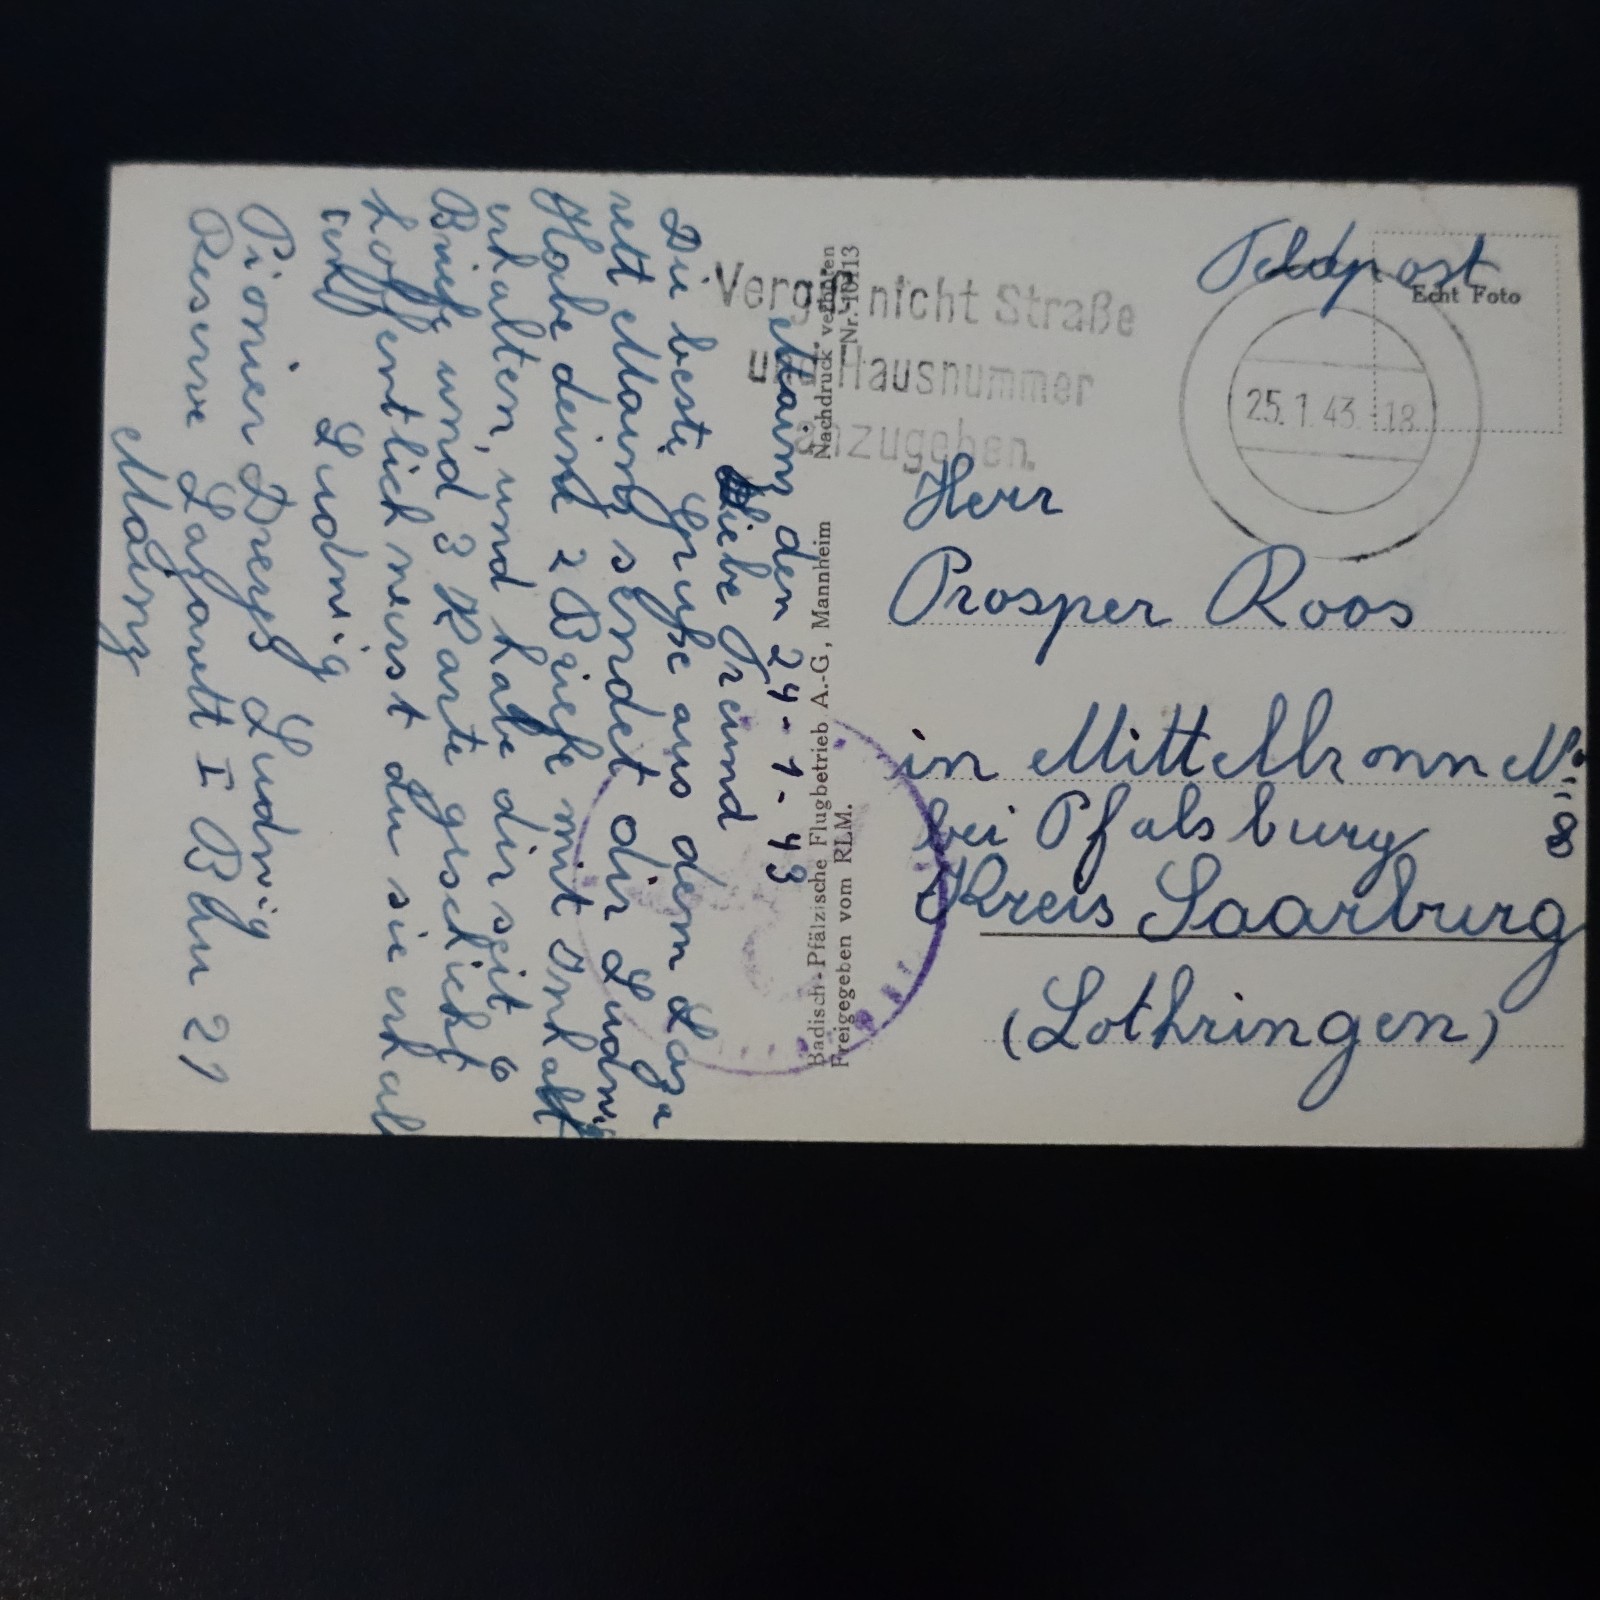 Feldpost
Echt Foto
Vergiß nicht Straße
und Hausnummer
anzugeben.
25.1.43.-18
Herr
Prosper Roos
in Mittelbronn N:
8
bei Pfalsburg
Kreis Saarburg
(Lothringen)
Nachdruck verboten
Nr. 10113
Badisch-Pfälzische Flugbetrieb A.-G., Mannheim
Freigegeben vom RLM.
Mainz den 24-1-43
Liebe Freund
Die beste Grüße aus dem Laza
rett Mainz sendet dir Ludwig
Habe deine 2 Briefe mit Inhalt
erhalten, und habe dir seit 6
Briefe und 3 Karte geschickt
Hoffentlich neirst du sie erhal
Ludwig
Pionier Dreyß Ludwig
Reserve Lazarett I Bau 21
Mainz